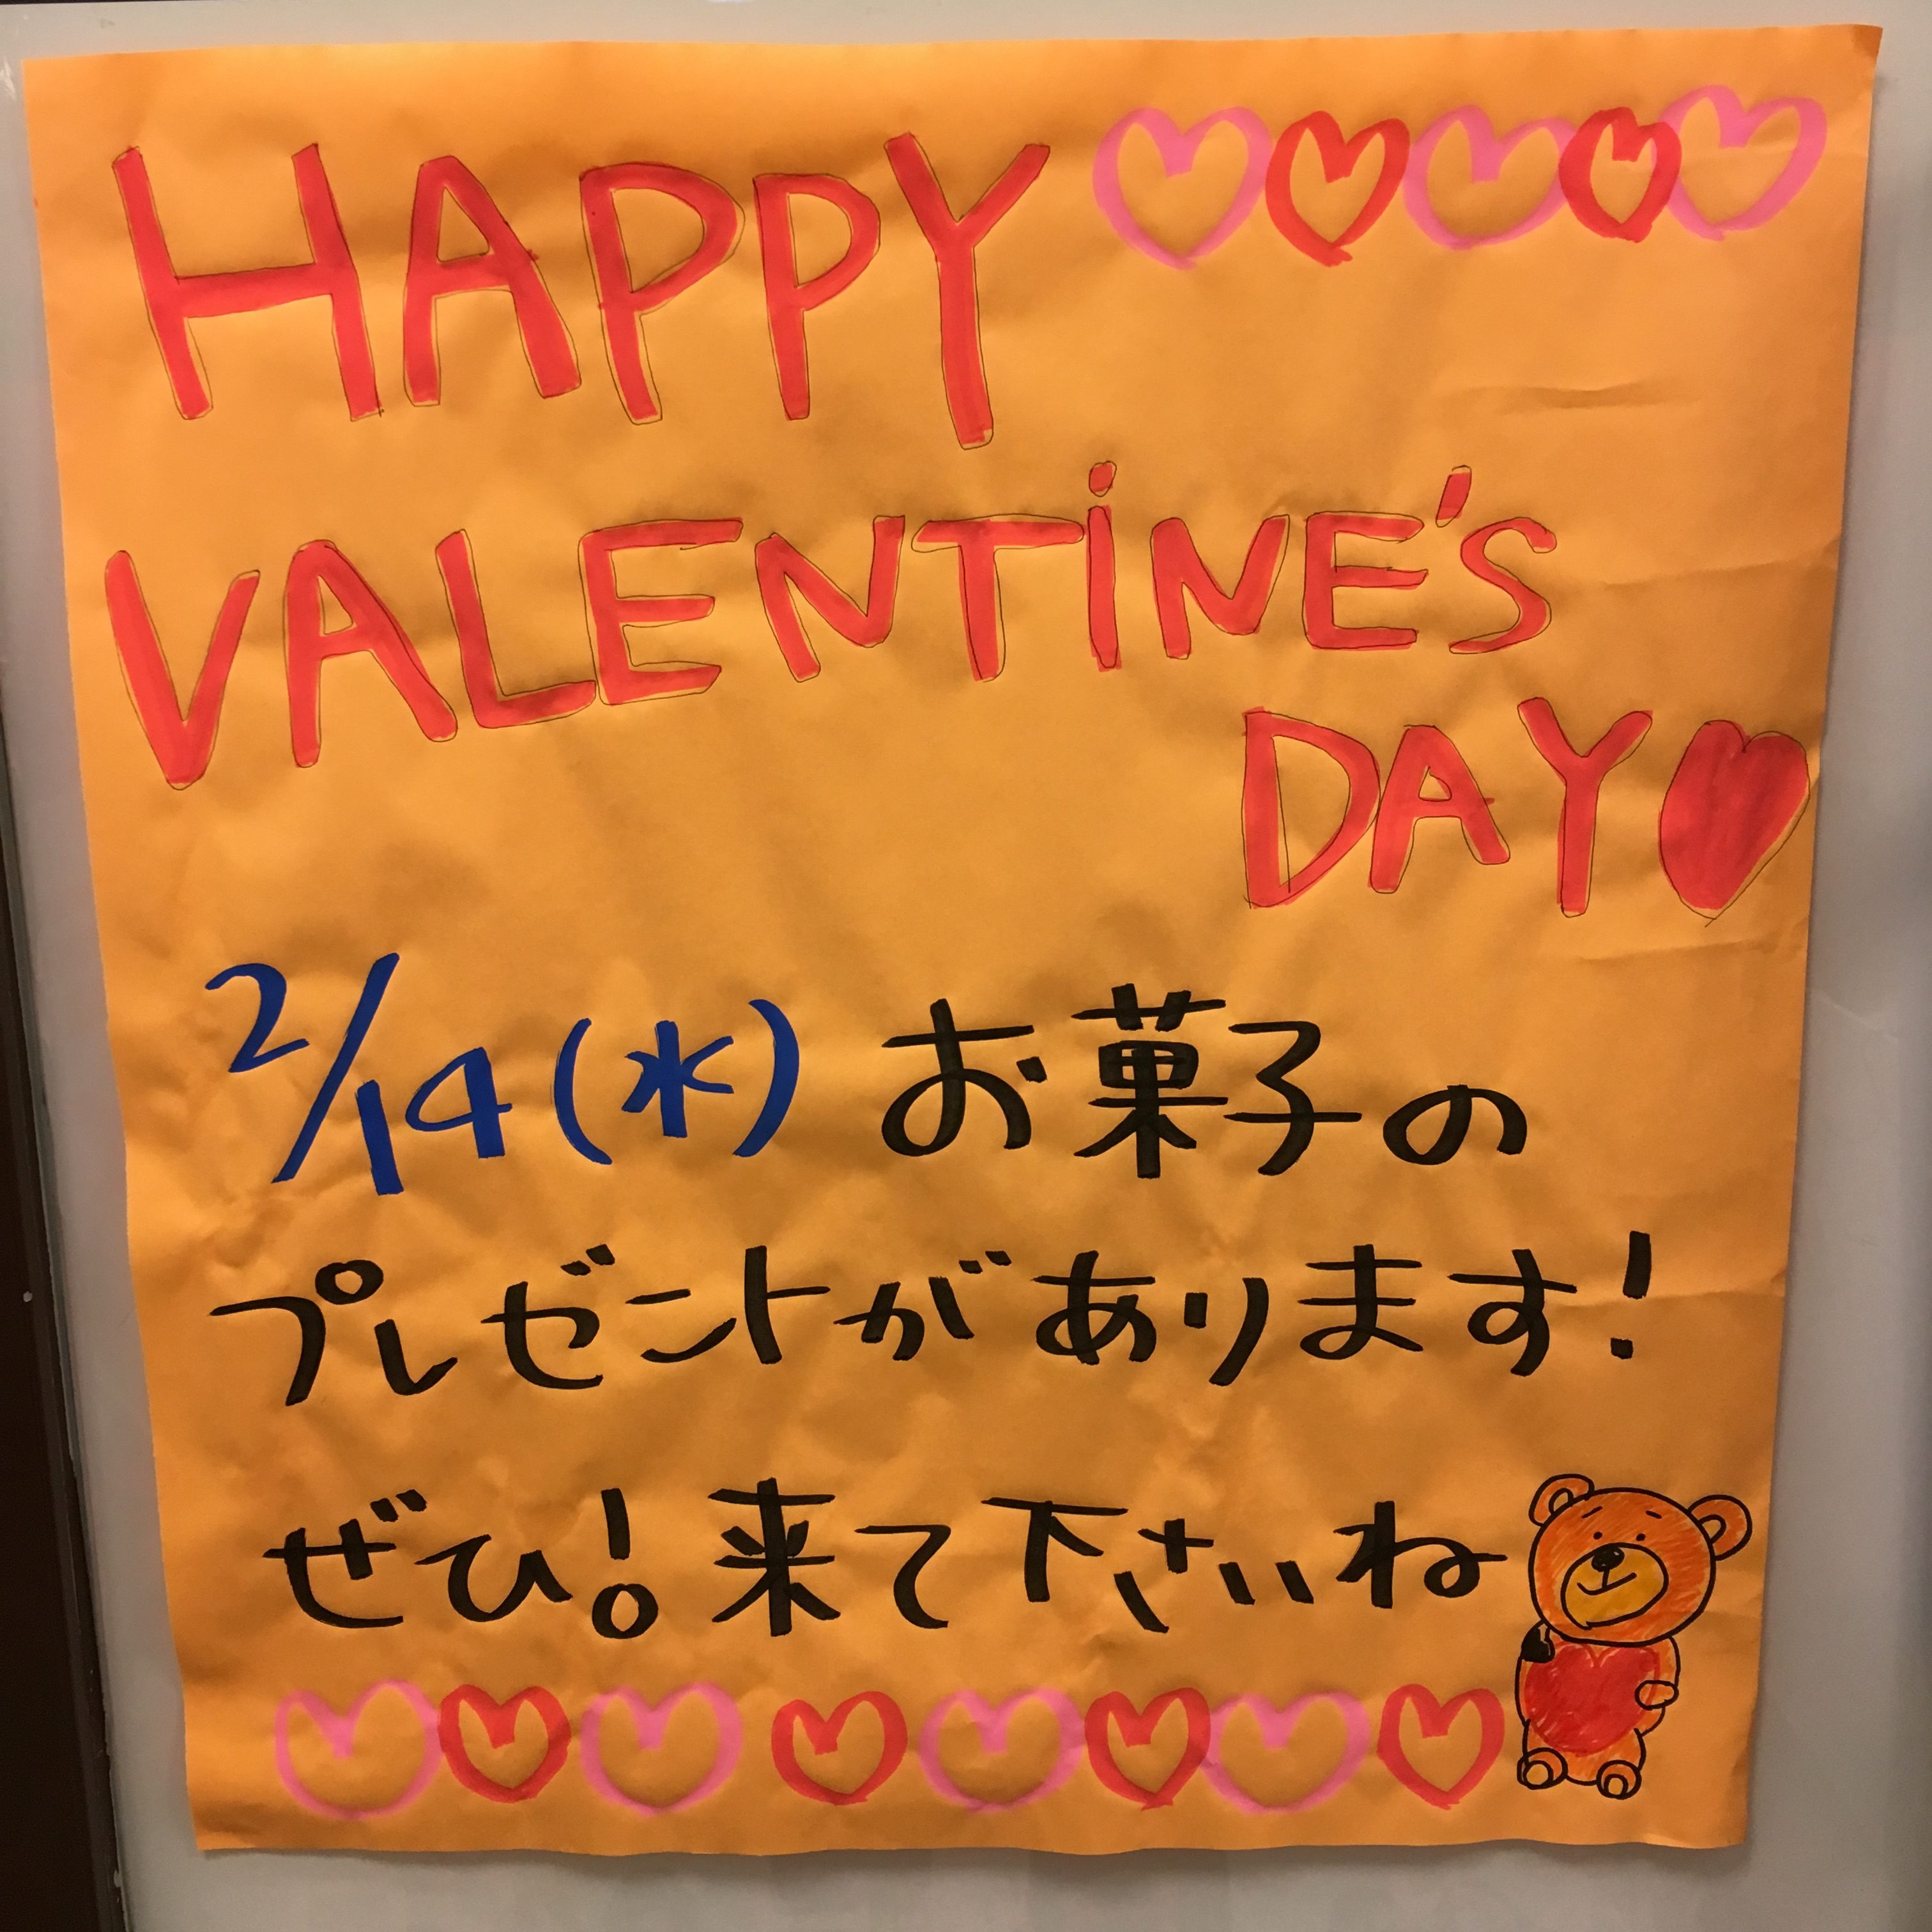 HAPPY
VALENTiNE'S
DAY
2/14(水) お菓子の
プレゼントがあります!
ぜひ!来て下さいね